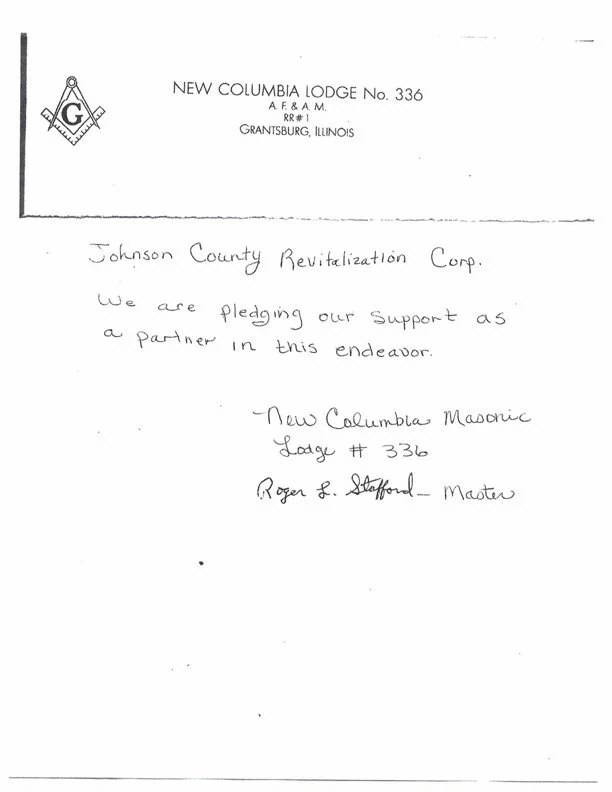 G
NEW COLUMBIA LODGE No. 336
A. F. & A. M.
RR# 1
GRANTSBURG, ILLINOIS
Johnson County Revitalization Corp.
We are pledging our support as
a partner in this endeavor.
New Columbia Masonic
Lodge # 336
Roger L. Stafford - Master